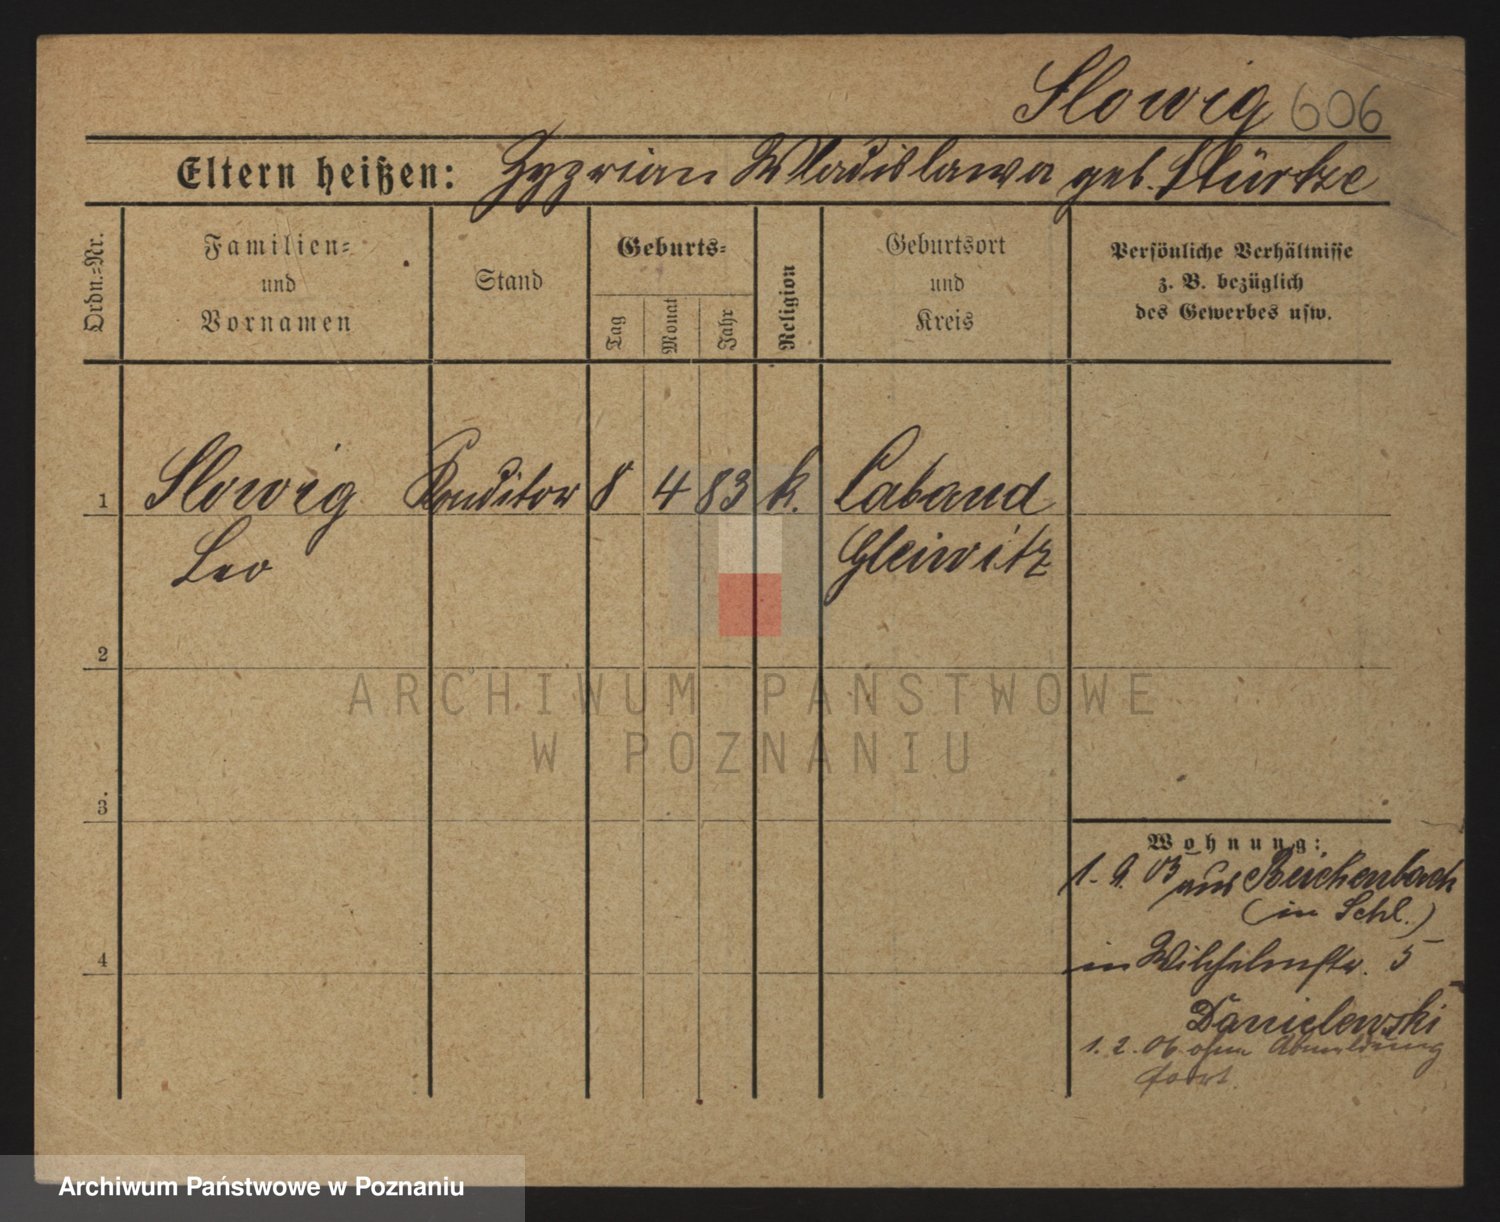 Slowig 606
Eltern heißen: Zyprian Wladislawa geb. Stürtze
Ordn.=Nr.
Familien=
und
Vornamen
Stand
Geburts=
Tag
Monat
Jahr
Religion
Geburtsort
und
Kreis
Persönliche Verhältnisse
z. B. bezüglich
des Gewerbes usw.
1 Slowig Konditor 8 4 83 k. Laband
Leo Gleiwitz
2
ARCHIWUM PAŃSTWOWE
W POZNANIU
3
Wohnung:
1. 9. 05 aus Reichenbach
(in Schl.)
4
in Wilhelmstr. 5
Danielewski
1. 2. 06 ohne Abmeldung
fort.
Archiwum Państwowe w Poznaniu